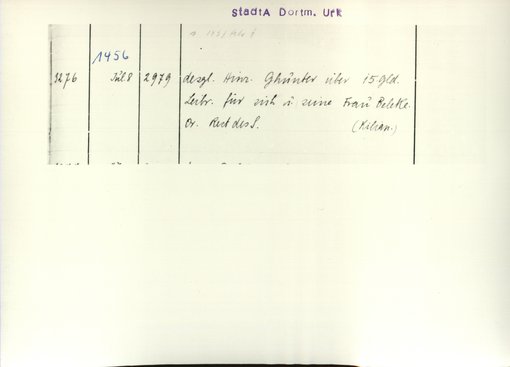 StadtA Dortm. Urk
1456
3276 Juli 8 2979 desgl. Hinr. Ghünter über 15 Gld.
Leibr. für sich u seine Frau Beleke.
Or. Rest des S. (Kilian.)